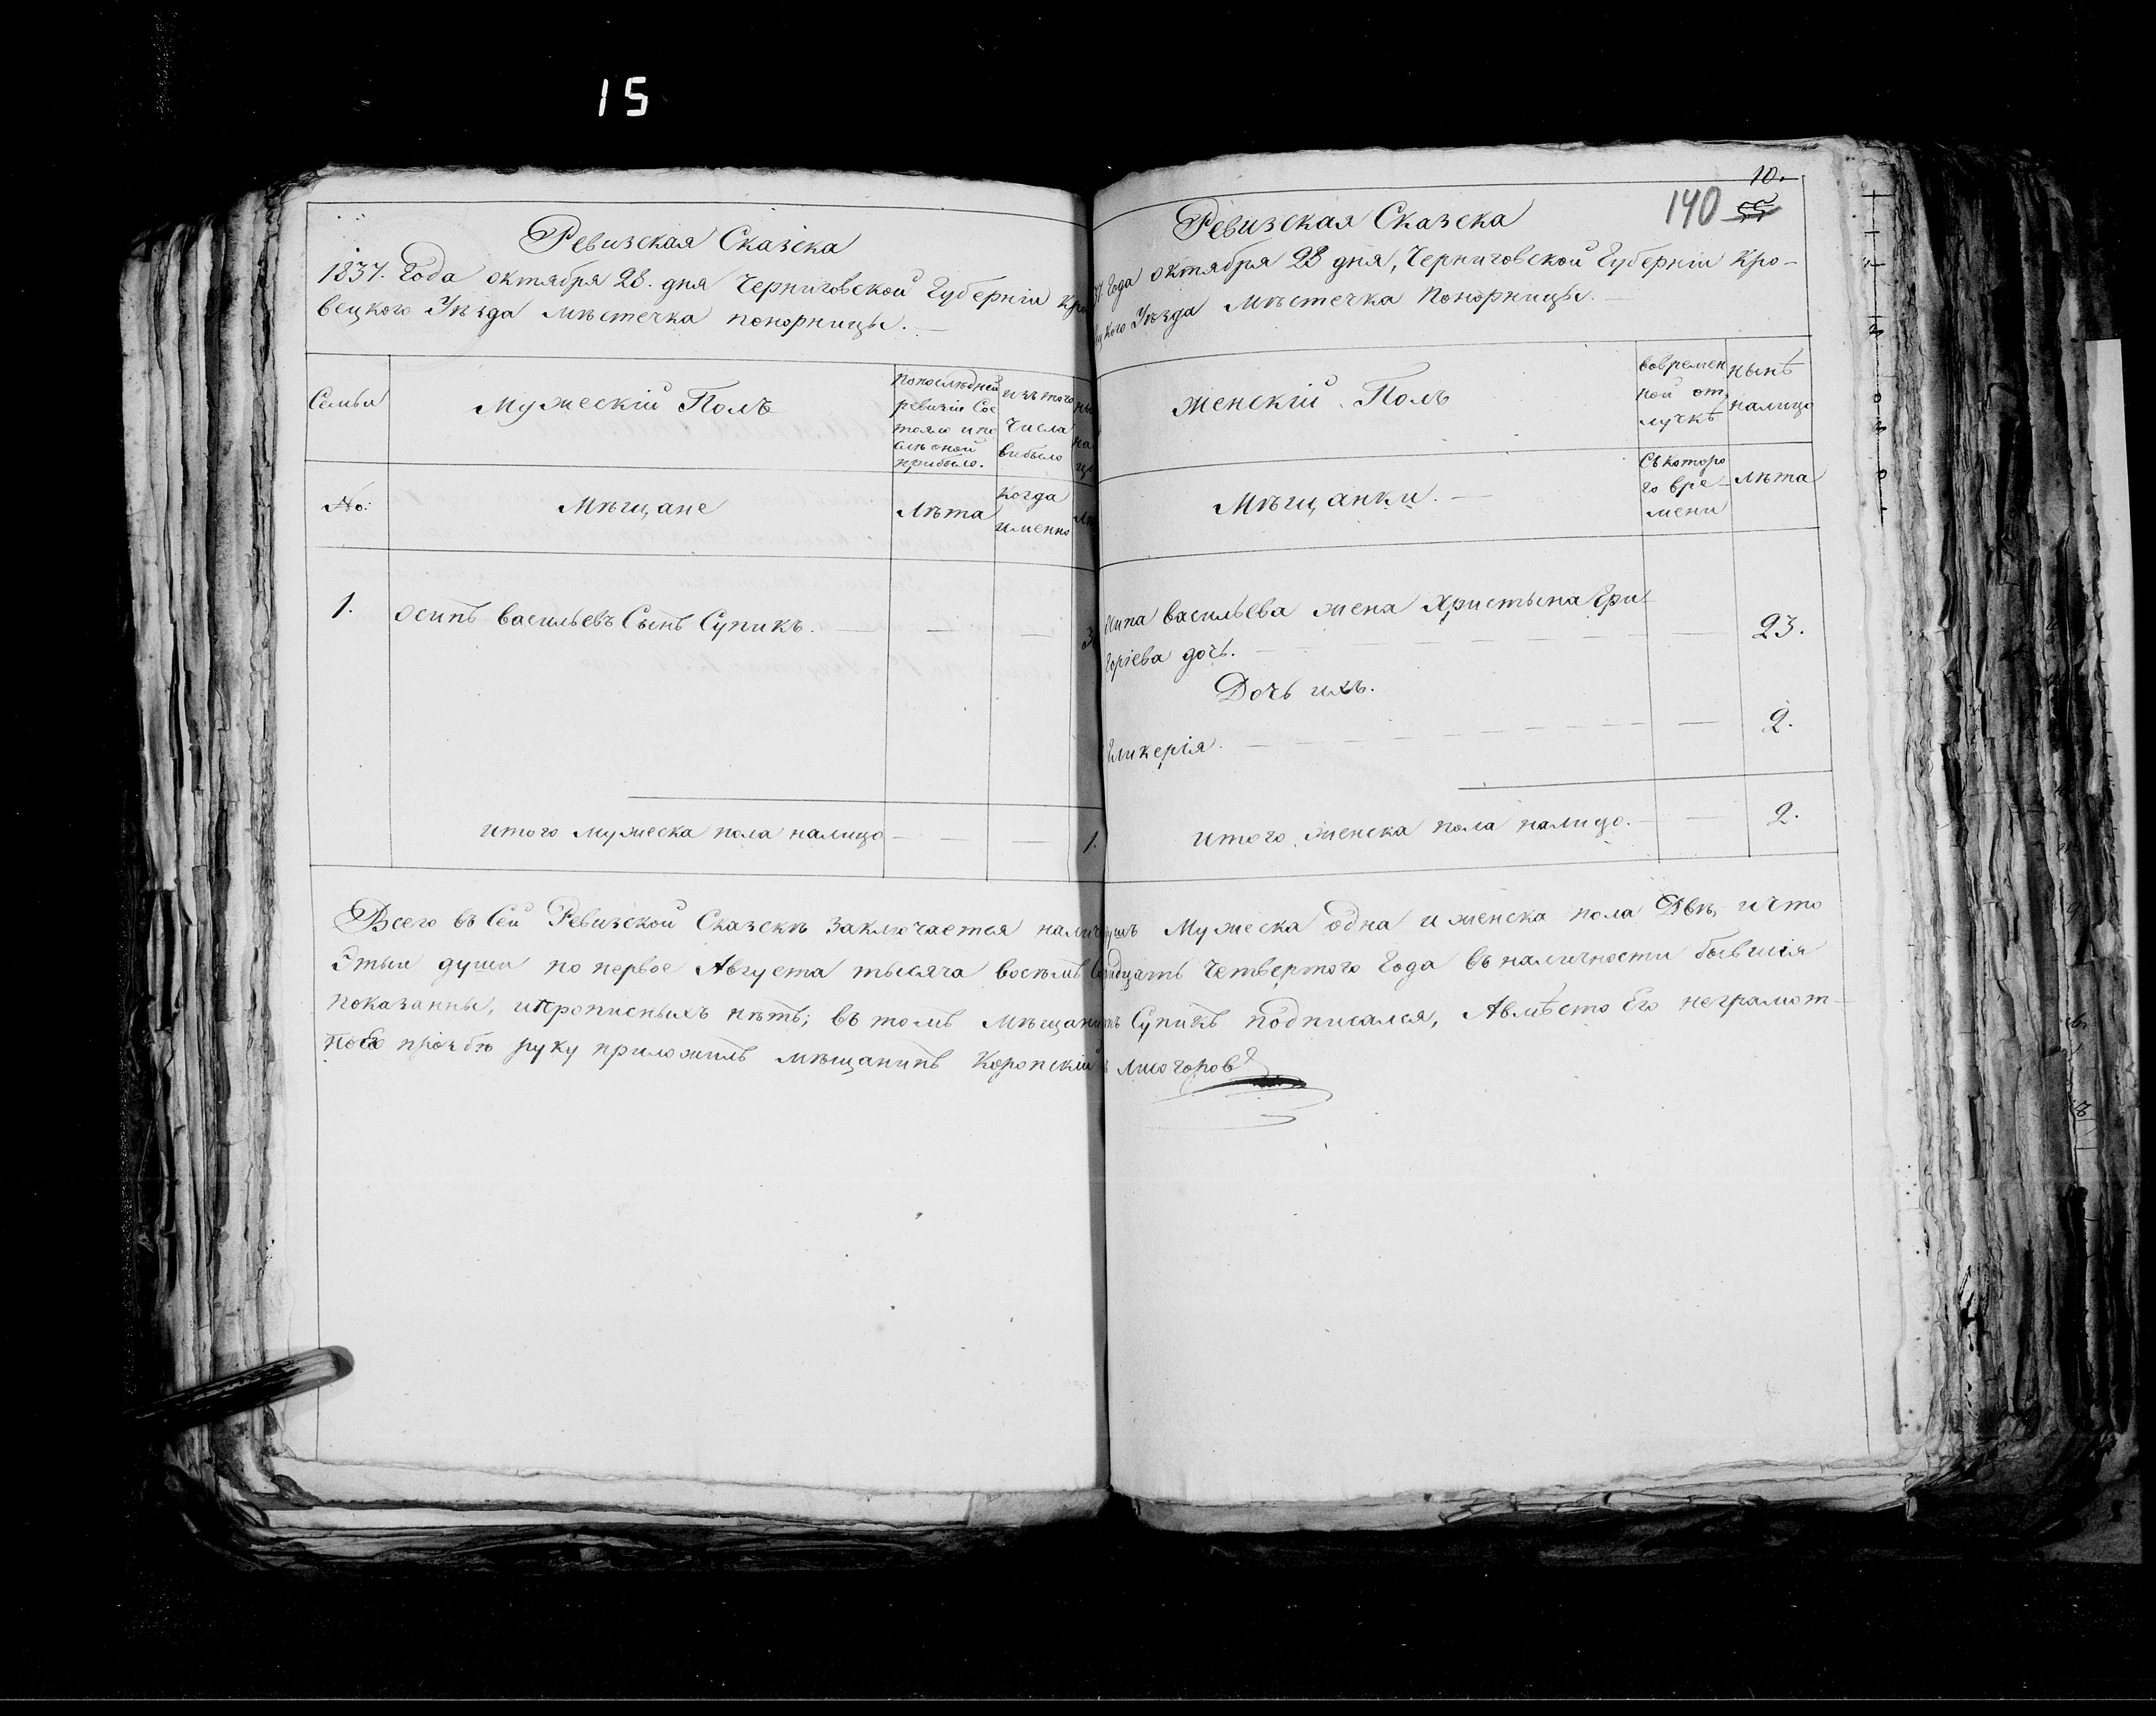 15
Ревизская Сказска
1837. Года октября 28. дня Черниговской Губерніи
вецкого Уѣзда мѣстечка понорницы.
Семьи
Мужескій Полъ
Попослѣдней
ревизіи Сос
тояло ипо
слѣ оной
прибыло.
изъ того
Числа
выбыло
№:
Мѣщане
Лѣта
Когда
именно
1.
осипъ васильевъ Сынъ Супикъ.
итого мужеска пола налицо
1.
140
10.
55
Ревизская Сказска
Года октября 28 дня, Черниговской Губерніи Кро-
Уѣзда Мѣстечка Понорницы.
Женскій Полъ
вовремен
ной от,
лучкѣ
нынѣ
налицо
Мѣщанки.
Съ которо
го вре-
мени
лѣта
васильева жена Христына Гри- 23.
горіева дочь.
Дочь ихъ.
Гликерія. 2.
итого женска пола налицо. 2.
Всего въ Сей Ревизской Сказскѣ заключается Мужеска одна и женска пола Двѣ, ичто
Этыи души по первое Августа тысяча восемъ Четвертого Года въ наличности бывшія
показанны, ипрописныхъ нѣтъ; въ томъ Супикъ подписался, Авмѣсто Его неграмот-
прозбѣ руку приложилъ мѣщанинъ Коропскій Лисогоровъ